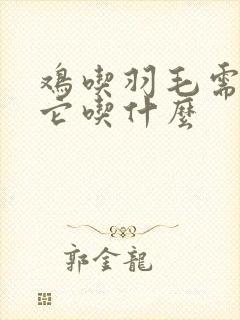 鸡喫羽毛需
它喫什麼
郭金龍